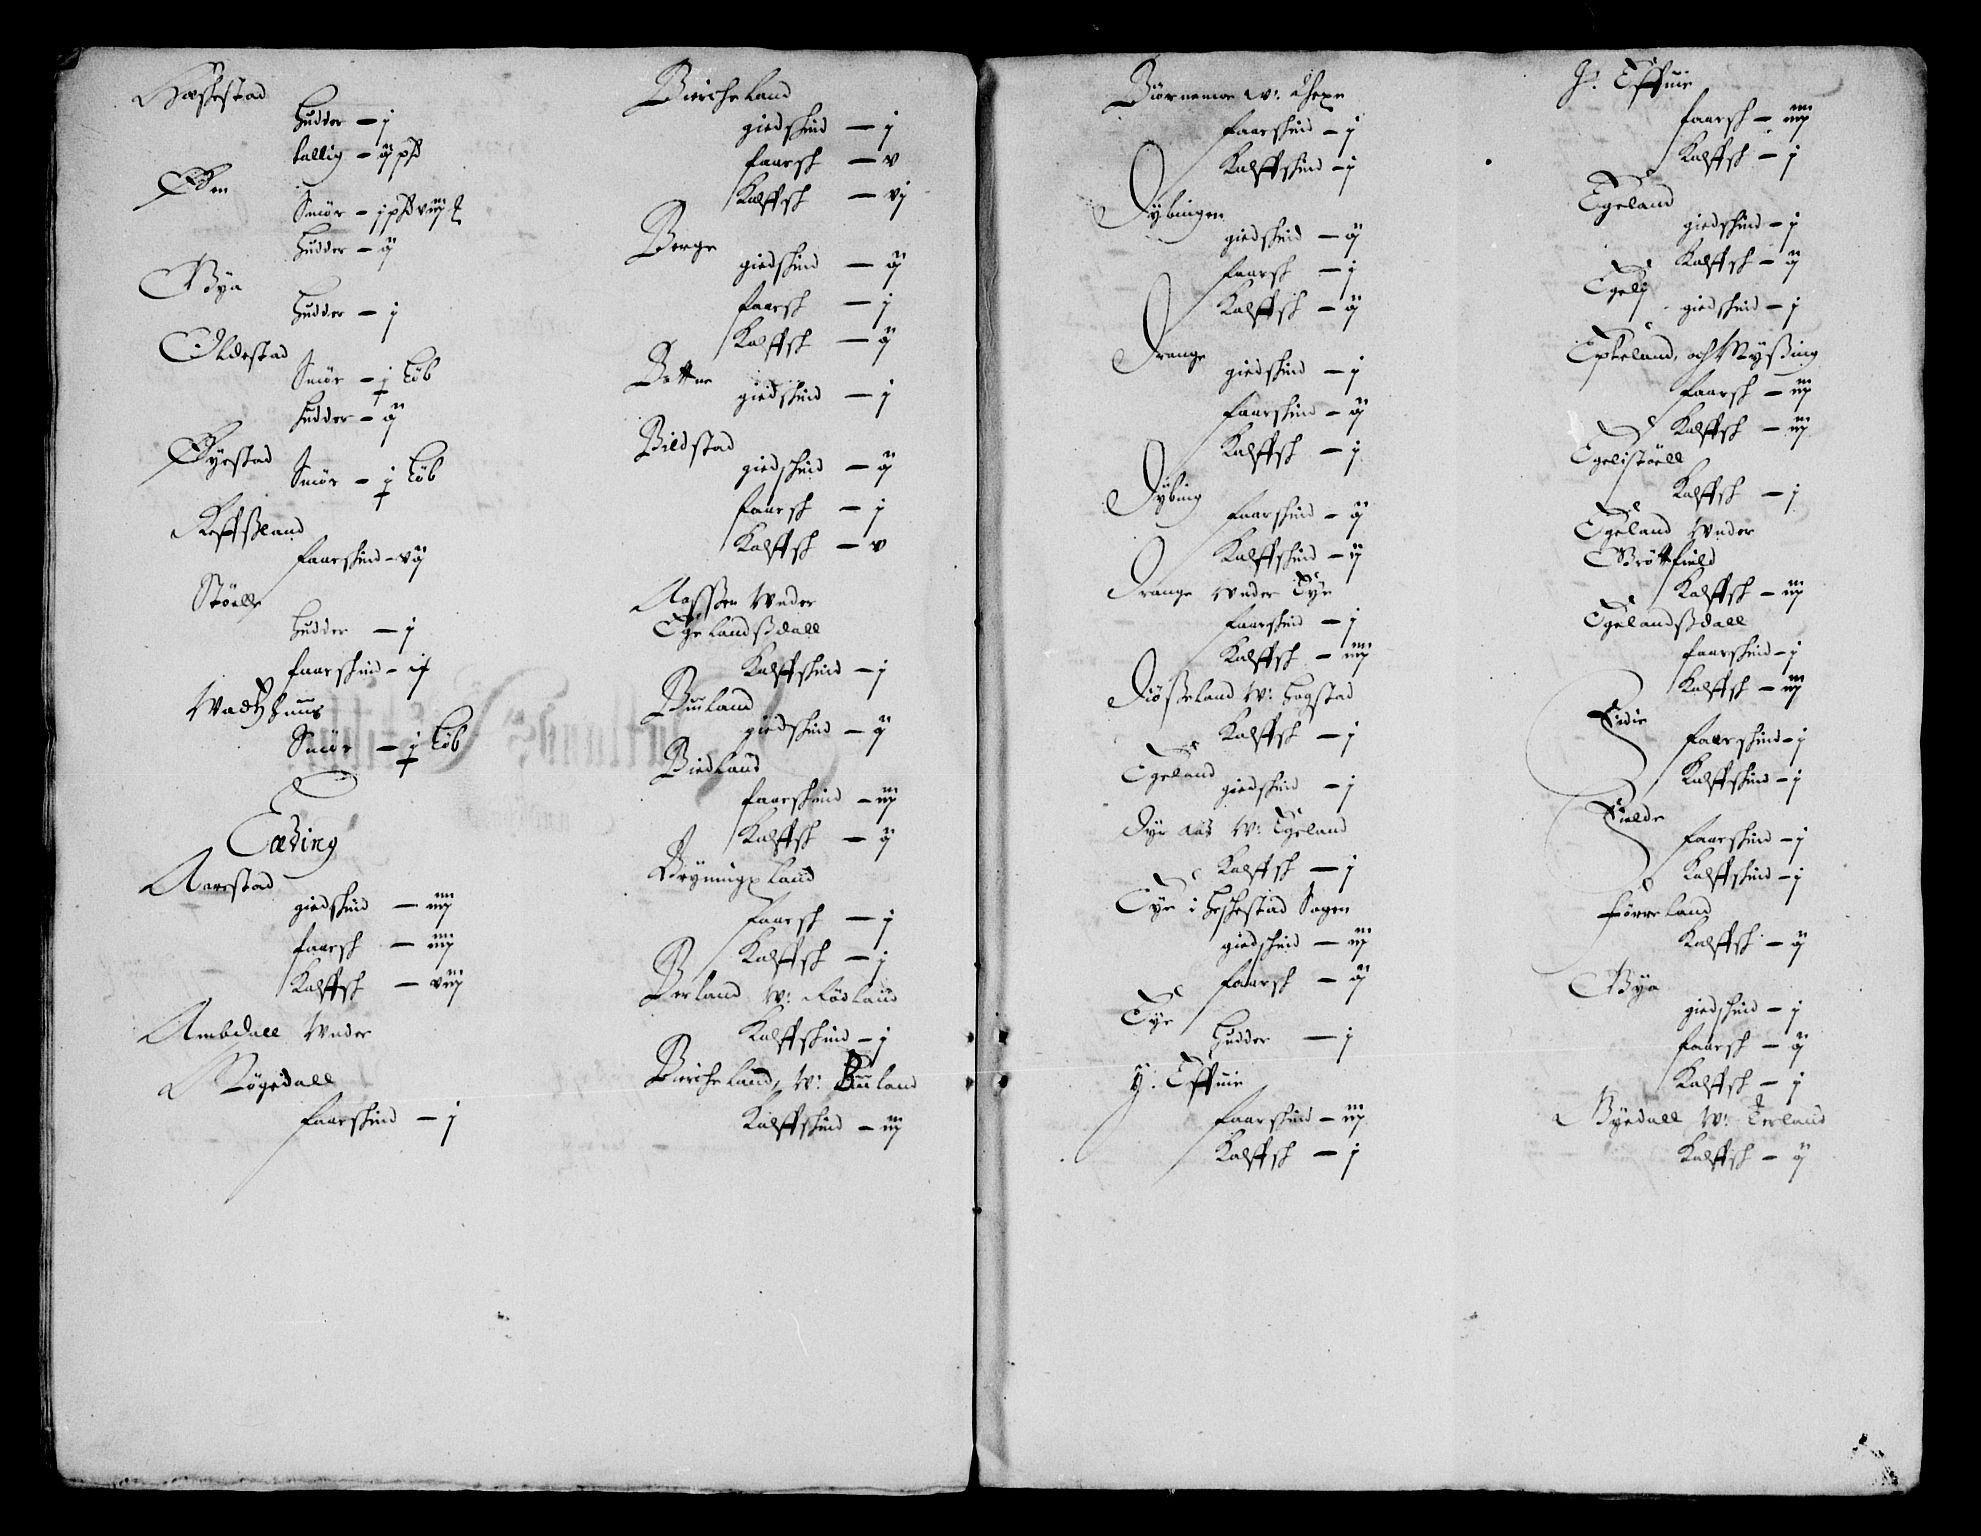 Høskestad
Hudder – j
tallig – ij pß
Eten
Smør – j pß viij
Hudder – ij
Bya
Hudder – j
Oldestad
Smør – j Løb
Hudder – ij
Øyestad
Smør – j Løb
Refßland
faarskind – vij
Støelle
Hudder – j
faarskind – ij
Wadtzhuus
Smør – j Løb
Aarestad
giedskind – iiij
faarsk – iiij
Kalffsk – viij
Ambdall Vnder
Møgedall
faarskind – j
Biercheland
giedskind – j
faarsk – v
Kalffsk – vj
Berge
giedskind – ij
faarsk – j
Kalffsk – ij
Botne
giedskind – j
Bildstad
giedskind – ij
faarsk – j
Kalffsk – v
Aaßen Vnder
Egelandßdall
Kalffskind – j
Buuland
giedskind – ij
Biedland
faarskind – iij
Kalffsk – ij
Brÿningsland
faarsk – j
Kalffsk – j
Berland W: Rødland
Kalffskind – j
Biercheland, W: Buuland
Kalffskind – iij
Biørnemoe W:
faarskind – j
Kalffskind – j
Dybingen
giedskind – ij
faarsk – j
Kalffsk – ij
Drange
giedskind – j
faarskind – ij
Kalffsk – j
Dÿbing
faarskind – ij
Kalffskind – ij
Drange Vnder Eye
faarskind – j
Kalffsk – iiij
Diøßeland W: Hogstad
Kalffsk – j
Egeland
giedskind – j
Dyr aas W: Egeland
Kalffsk – j
Eye i Heskestad Sogen
giedskind – iij
faarsk – ij
Eye
Hudder – j
ÿ: Effuie
faarskind – iij
Kalffsk – j
Effuie
faarsk – iiij
Kalffsk – j
Egeland
giedskind – j
Kalffsk – ij
Egelj
giedskind – j
Epteland, och Myßing
faarsk – iij
Kalffsk – iij
Egelistøell
Kalffsk – j
Egeland Vnder
Brøttfield
Kalffsk – iij
Egelandßdall
faarskind – j
Kalffsk – iij
Fidie
faarskind – j
Kalffskind – j
Fielde
faarskind – j
Kalffskind – j
Førreland
Kalffsk – ij
Bya
giedskind – j
faarsk – ij
Kalffsk – j
Byedall W: Terland
Kalffsk – ij